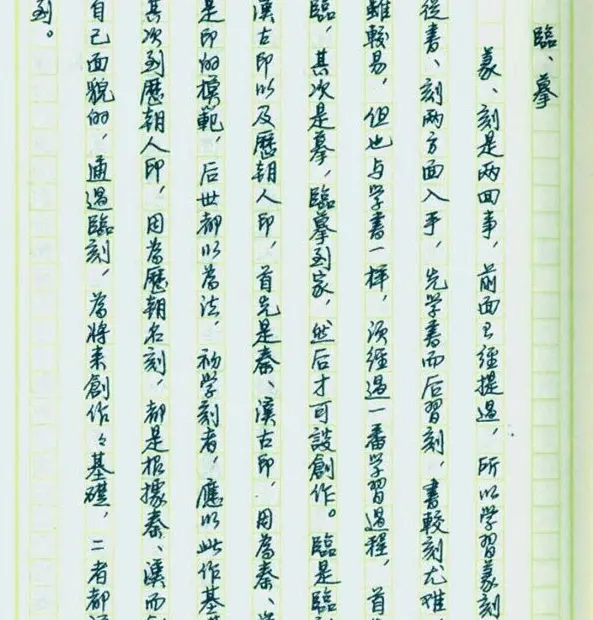 臨、摹
篆、刻是两回事，前面已經提過，所以学習篆刻
從書、刻两方面入手，先学書而后習刻，書較刻尤难，
雖較易，但也与学書一样，須經過一番学習過程，首
臨，其次是摹，臨摹到家，然后才可設創作。臨是臨
漢古印以及歷朝人印，首先是秦、漢古印，因為秦、
是印的模範，后世都以為法，初学刻者，應以此作基
其次到歷朝人印，因為歷朝名刻，都是根據秦、漢而
自己面貌的，通過臨刻，為將来創作之基礎，二者都
到。